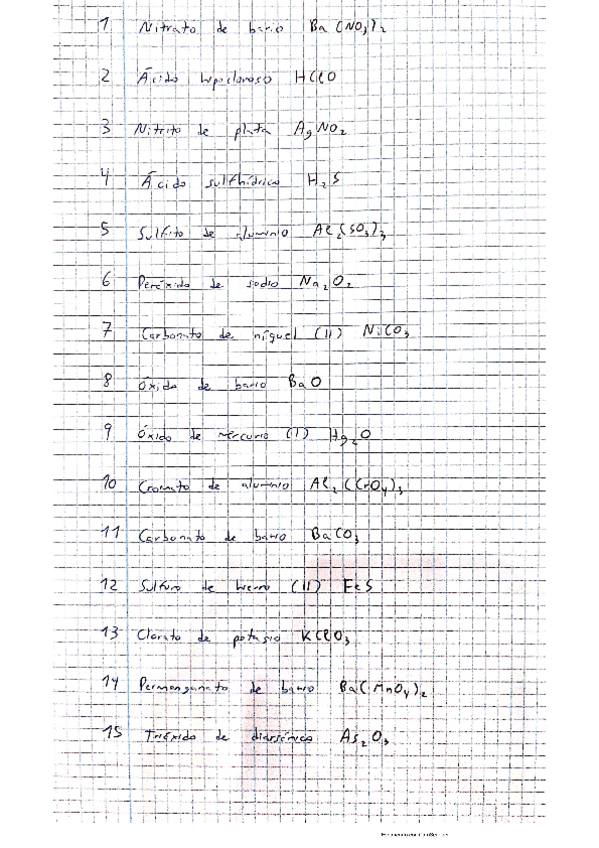 1 Nitrato de bario Ba(NO₃)₂
2 Ácido hipocloroso HClO
3 Nitrito de plata AgNO₂
4 Ácido sulfhídrico H₂S
5 Sulfito de aluminio Al₂(SO₃)₃
6 Peróxido de sodio Na₂O₂
7 Carbonato de níquel (II) NiCO₃
8 Óxido de bario BaO
9 Óxido de mercurio (I) Hg₂O
10 Cromato de aluminio Al₂(CrO₄)₃
11 Carbonato de bario BaCO₃
12 Sulfuro de hierro (II) FeS
13 Clorato de potasio KClO₃
14 Permanganato de bario Ba(MnO₄)₂
15 Trióxido de diarsénico As₂O₃